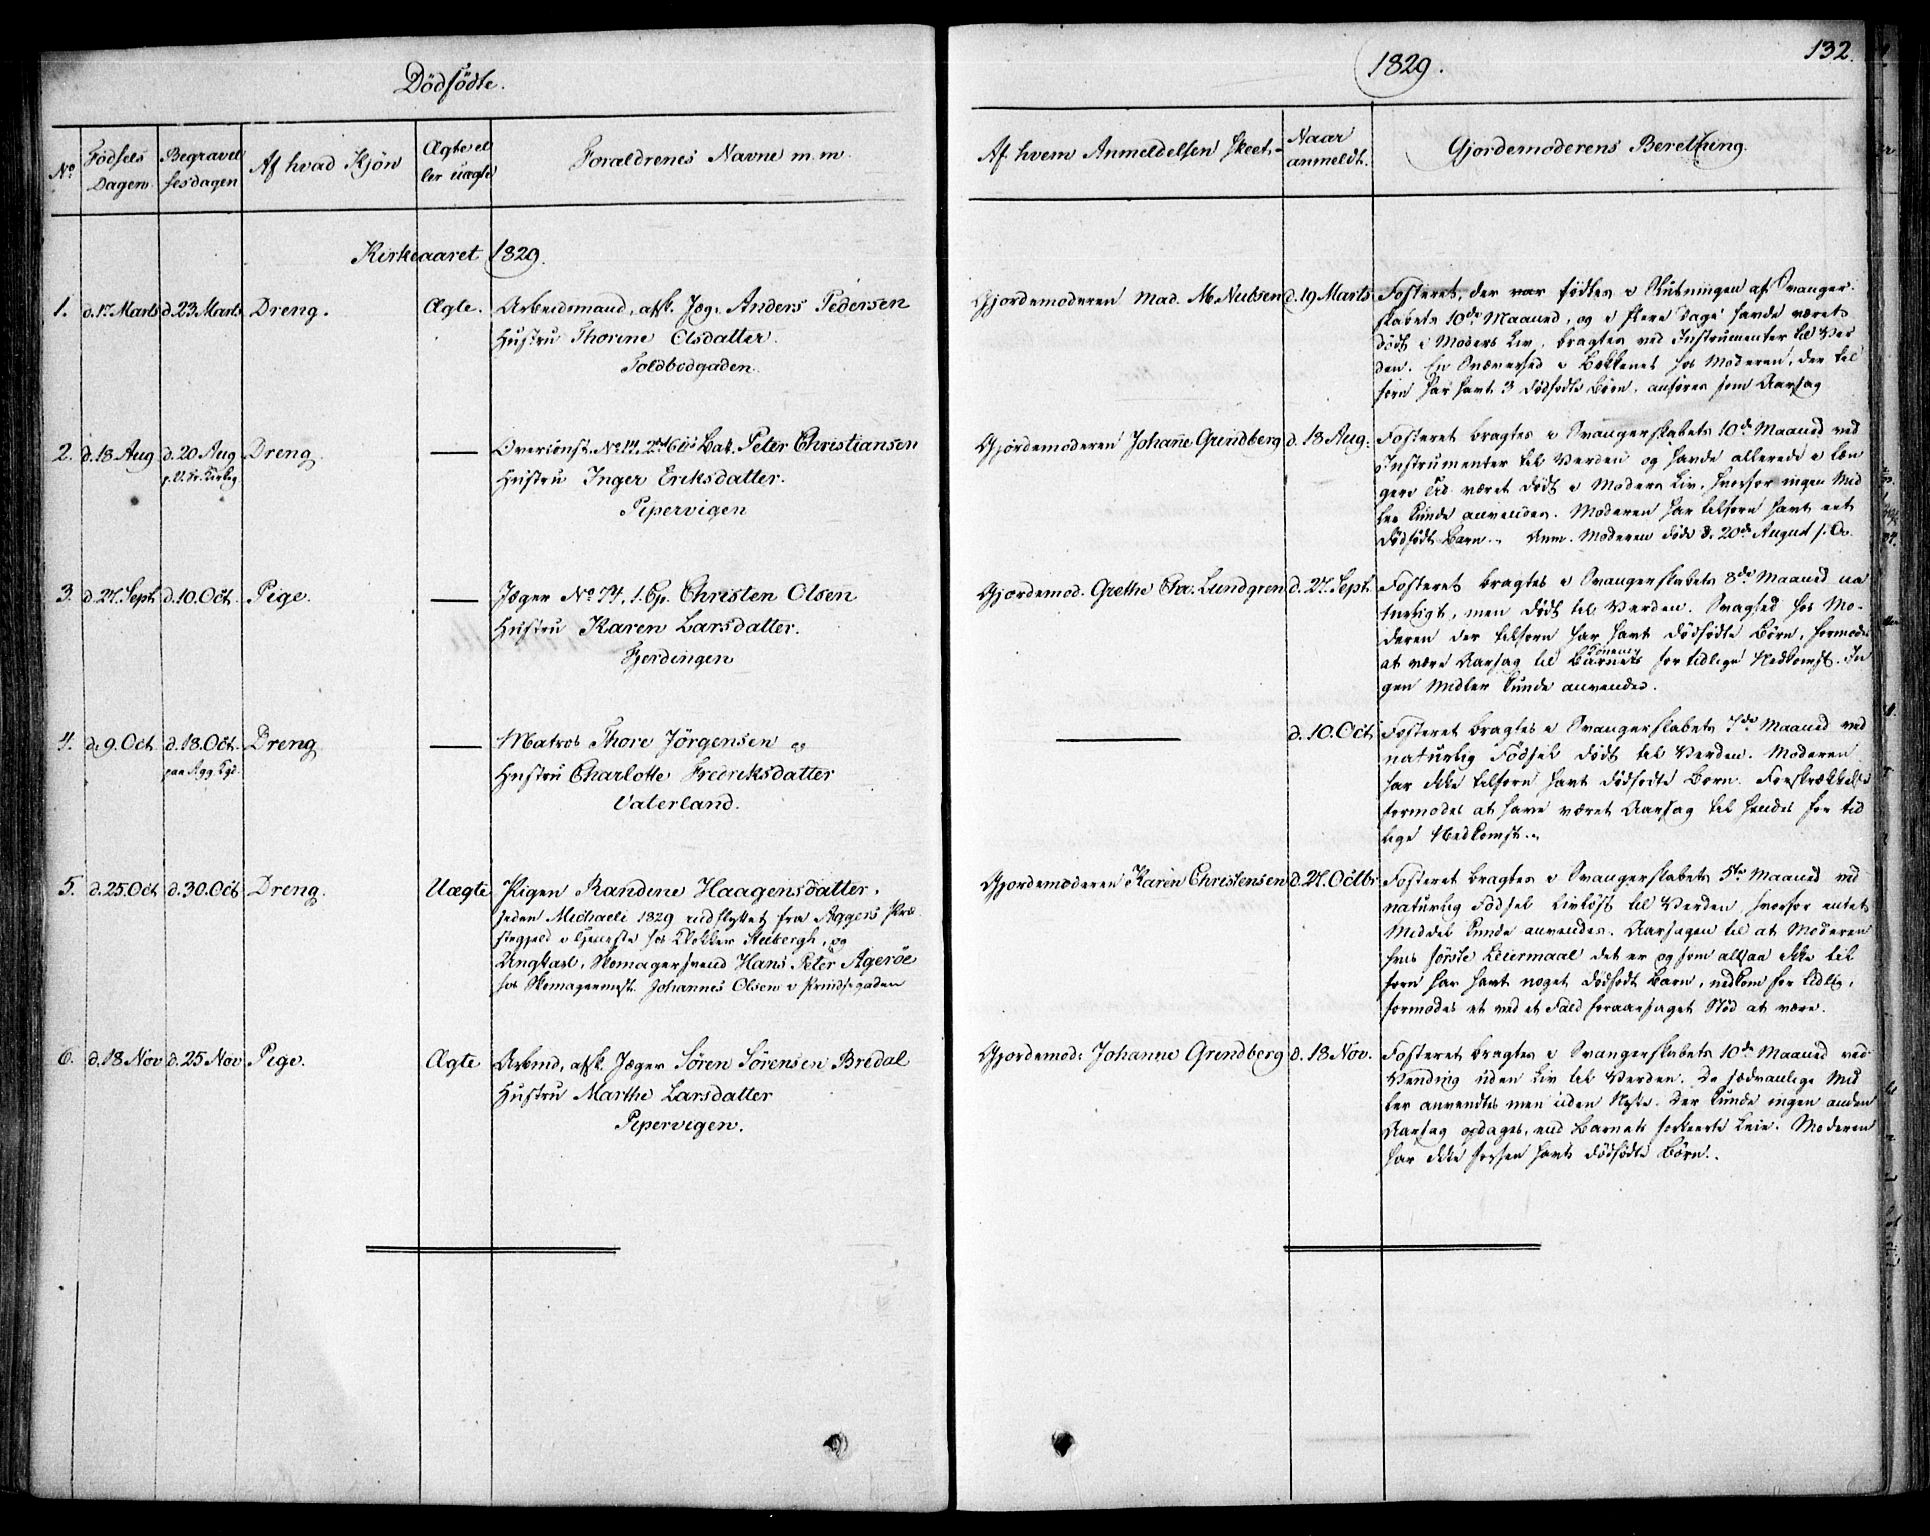 Dødfødte.
1829.
132.
No
Fødsels Dagen.
Begravelsesdagen
Af hvad Kjön
Ægte eller uægte
Forældrenes Navne m. m.
Af hvem Anmeldelsen skeet.
Naar anmeldt.
Gjordemoderens Beretning.
Kirkeaaret 1829.
1. d. 17 Marts d. 23 Marts Dreng. Ægte. Arbeidsmand, afsk. Jæg. Anders Pedersen
Hustru Thorine Olsdatter.
Toldbodgaden.
Gjordemoderen Mad. M. d. 19 Marts
Fosteret, der var født i Slutningen af Svanger-
skabets 10de Maaned, og i flere Dage havde været
dödt i Moders Liv, bragtes ved Instrumenter til Ver
den. En Snæverhed i Bækkenet hos Moderen, der til
forn har havt 3 dödfødte Børn, anføres som Aarsag
2. d. 18 Aug d. 20 Aug Dreng — No 14, 2det Bat. Peter Christiansen
Hustru Inger Eriksdatter.
Pipervigen
Gjordemoderen Johanne Grundberg d. 18 Aug.
Fosteret bragtes i Svangerskabets 10de Maaned ved
Instrumenter til Verden og havde allerede i læn
gere Tid været dödt i Moders Liv, hvorfor ingen Mid
ler kunde anvendes. Moderen har tilforn havt eet
dödfödt Barn. Anm. Moderen døde d. 20de August s. A.
3. d. 27. Sept. d. 10. Oct. Pige. — Jæger No 74, 1. Cp. Christen Olsen
Hustru Karen Larsdatter.
Fjerdingen
Gjordemod. Grethe Chr. Lundgren d. 27. Sept.
Fosteret bragtes i Svangerskabets 8de Maaned na
turligt, men dödt til Verden. Svaghed hos Mo-
deren der tilforn har havt dödfödte Börn, formodes
at være Aarsag til Konens for tidlige Nedkomst. In
gen Midler kunde anvendes.
4. d. 9. Oct d. 18. Oct. Dreng — Matros Thore Jörgensen og
paa Agg. Kgd.
Hustru Charlotte Fredriksdatter
Vaterland.
— d. 10. Oct
Fosteret bragtes i Svangerskabets 7de Maaned ved
naturlig Födsel dödt til Verden. Moderen
har ikke tilforn havt dödfödte Börn. Forskrækkelse
formodes at have været Aarsag til hendes for tid
lige Nedkomst.
5. d. 25. Oct d. 30. Oct Dreng. Uægte Pigen Randine Haagensdatter,
siden Michaeli 1829 indflyttet fra Aggers Præ
stegjeld i Tjeneste hos Klokker Stubergh, og
Ungkarl, Skomagersvend Hans Peter Ageröe
hos Skomagermest. Johannes Olsen i Prindsegaden
Gjordemoderen Karen Christensen d. 27. Octbr
Fosteret bragtes i Svangerskabets 5te Maaned ved
naturlig Födsel livløst til Verden, hvorfor intet
Middel kunde anvendes. Aarsagen til at Moderen
hvis første Leiermaal det er og som altsaa ikke til
forn har havt noget dödfödt Barn, nedkom for tidlig,
formodes et ved et Fald foraarsaget Stød at være.
6. d. 18 Nov d. 25 Nov Pige. Ægte Arbmd, afsk. Jæger Sören Sörensen Bredal
Hustru Marthe Larsdatter
Pipervigen.
Gjordemod. Johanne Grundberg d. 18 Nov.
Fosteret bragtes i Svangerskabets 10de Maaned ved
Vending uden Liv til Verden. De sædvanlige Mid
ler anvendtes men uden Nytte. Der kunde ingen anden
Aarsag opdages, end Barnets forkeerte Leie. Moderen
har ikke forhen havt dödfödte Börn.